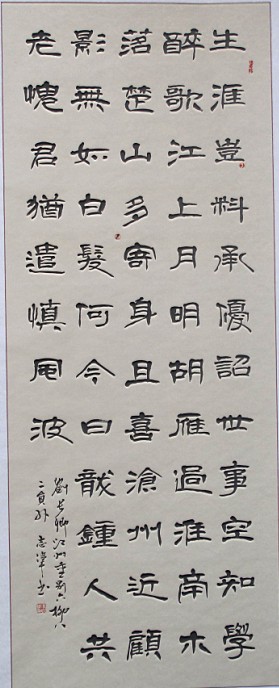 生涯豈料承優詔世事空知學
醉歌江上月明胡雁過淮南木
落楚山多寄身且喜滄州近顧
影無如白髮何今日龍鍾人共
老愧君猶遣慎風波
劉長卿江州重別六柳八
二員外 志書